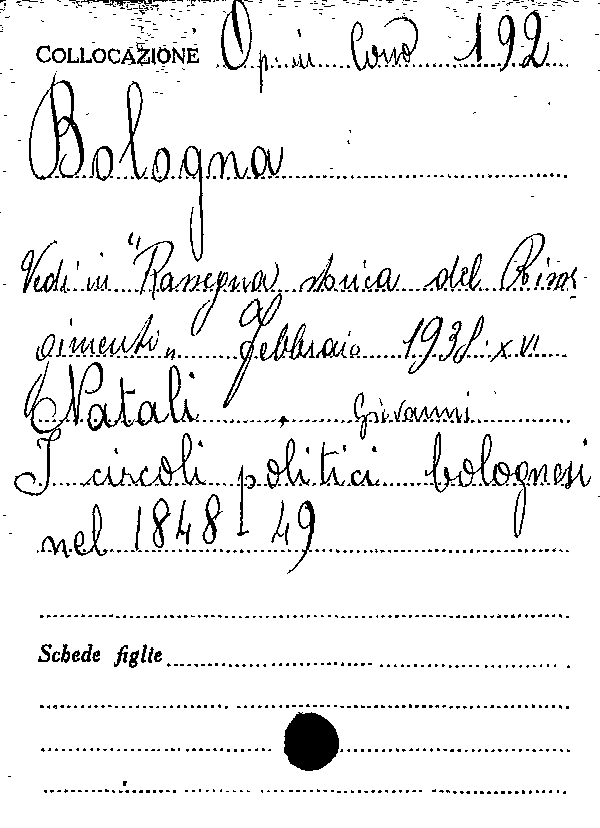 COLLOCAZIONE Op. in Cons 192
Bologna
Vedi in "Rassegna storica del Risor-
gimento„ Febbraio 1938. XVI
Natali, Giovanni
I circoli politici bolognesi
nel 1848-49
Schede figlie